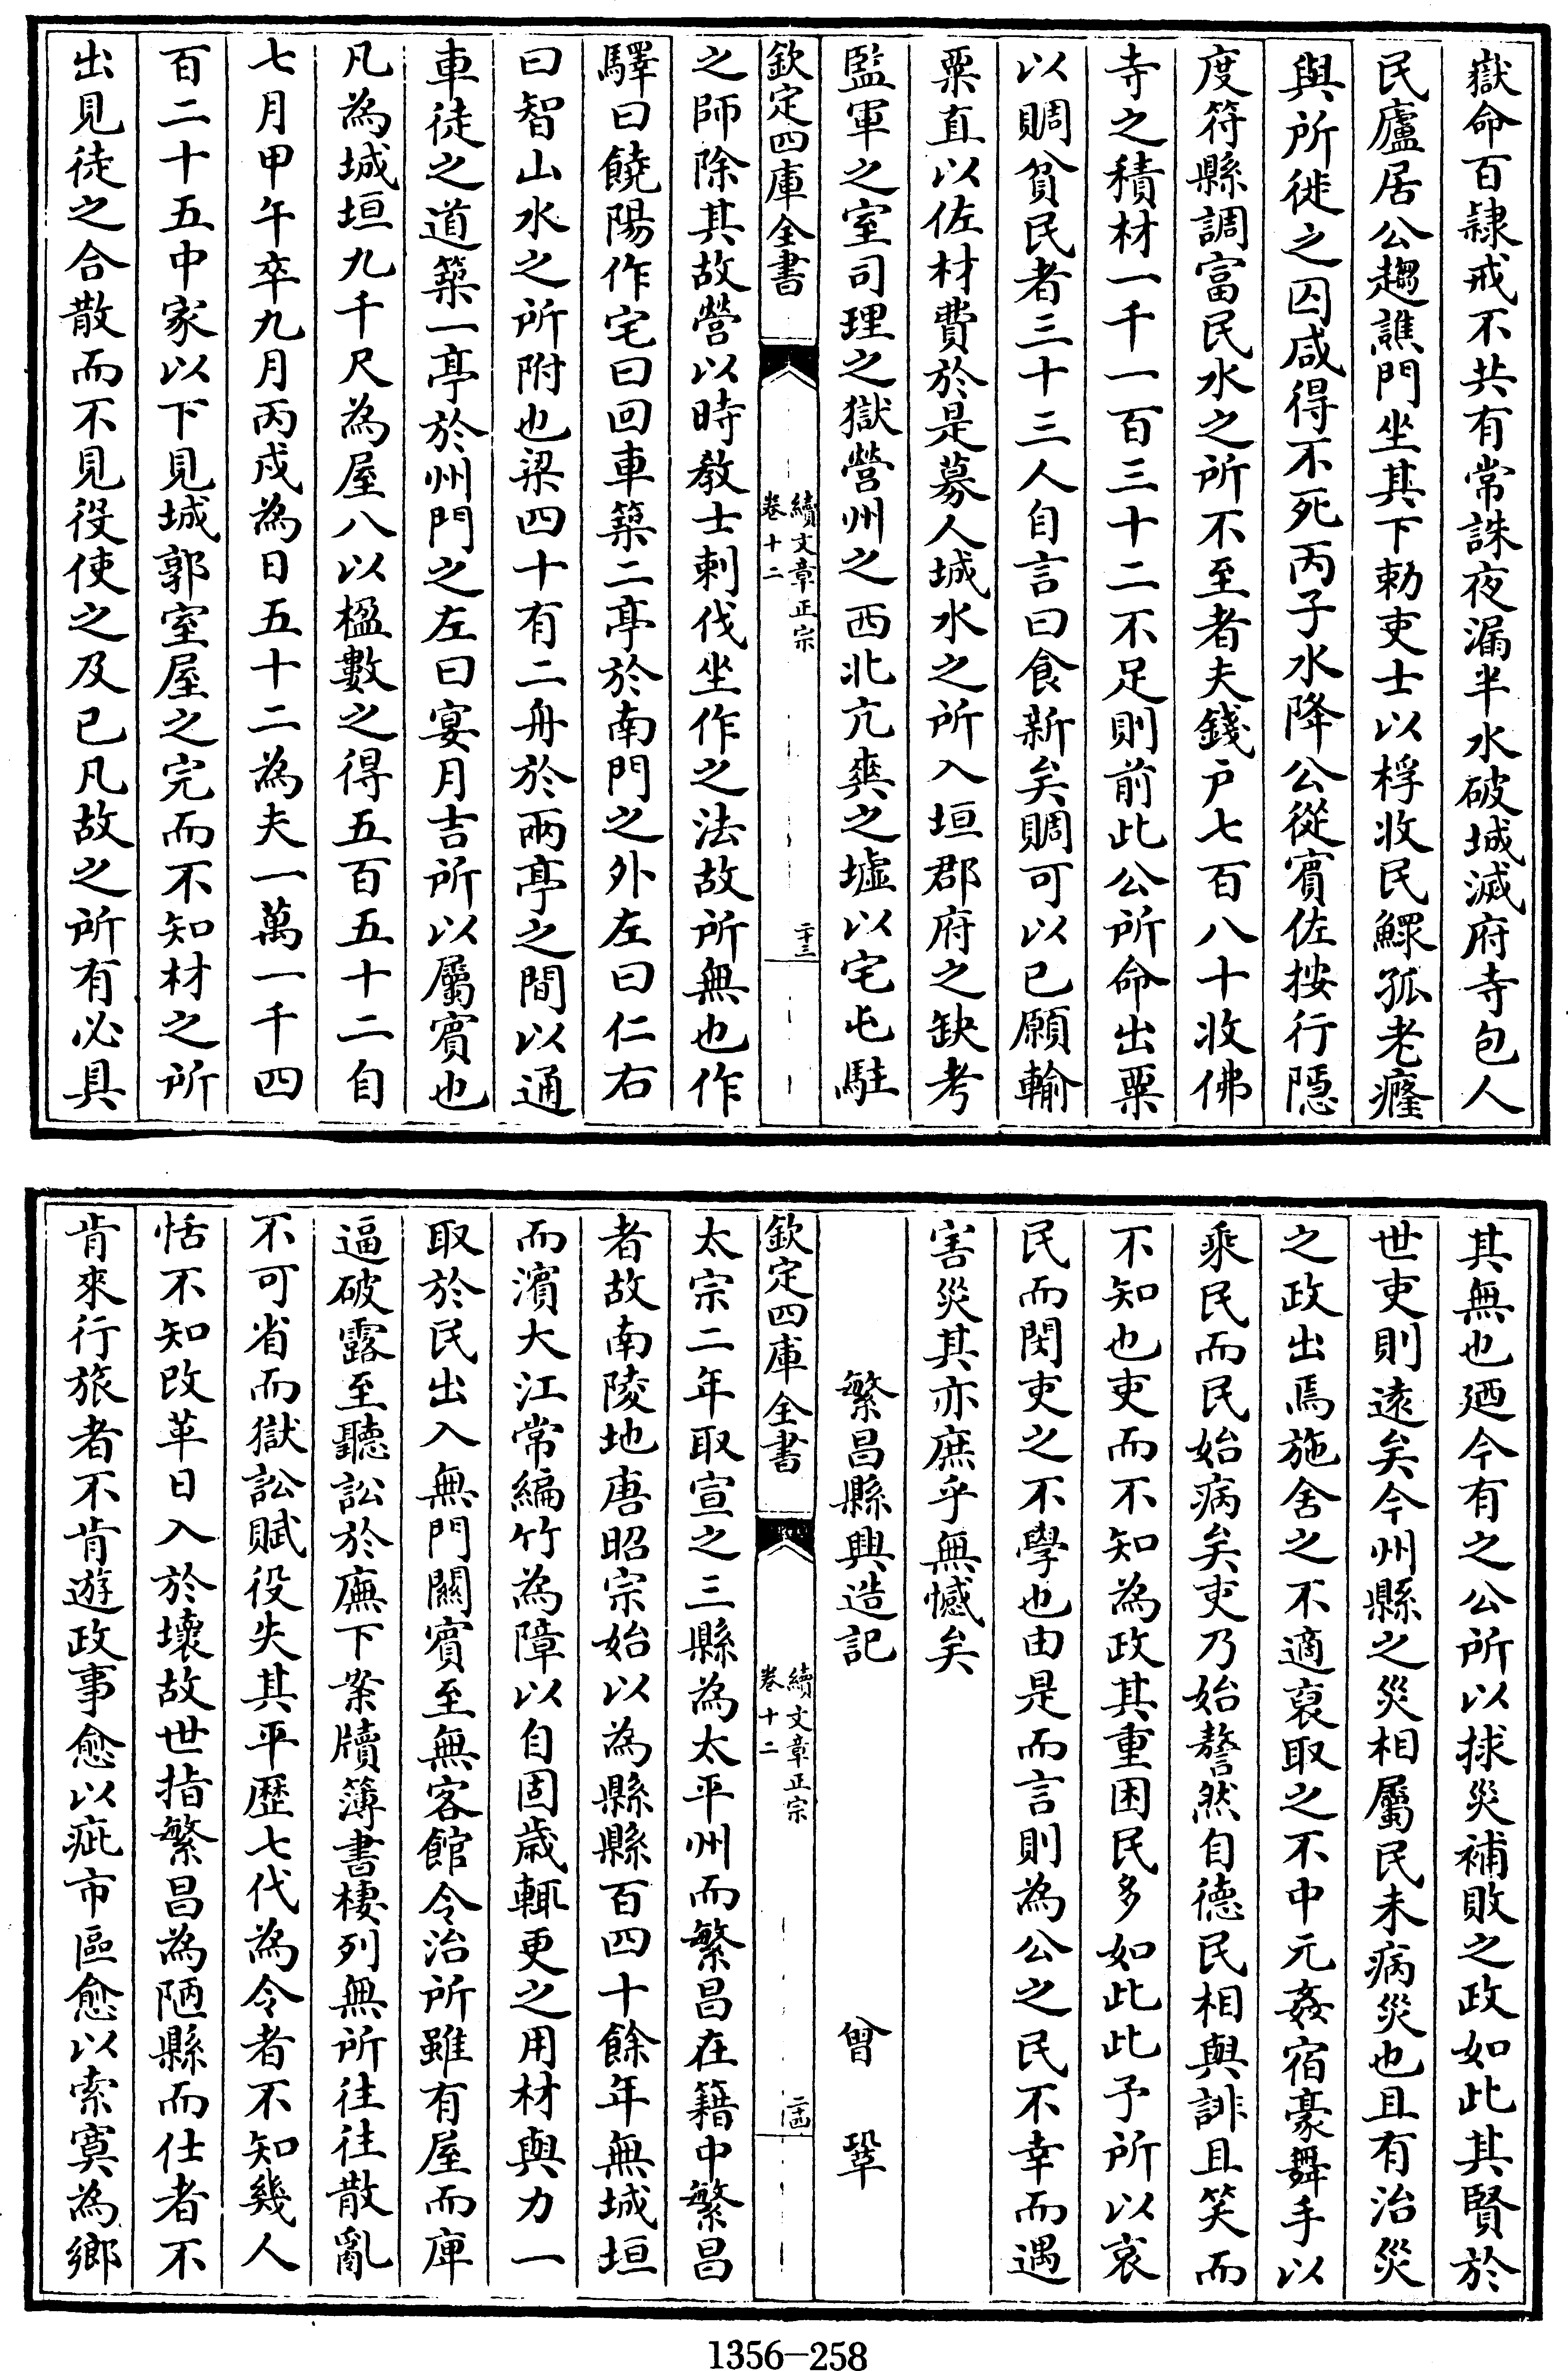 獄命百隸戒不共有常誅夜漏半水破城滅府寺包人
民廬居公趨譙門坐其下勅吏士以桴收民鰥孤老癃
與所徙之囚咸得不死丙子水降公從賓佐按行隱
度符縣調富民水之所不至者夫錢户七百八十收佛
寺之積材一千一百三十二不足則前此公所命出粟
以賙貧民者三十三人自言曰食新矣賙可以已願輸
粟直以佐材費於是募人城水之所入垣郡府之缺考
監軍之室司理之獄營州之西北亢爽之墟以宅屯駐
欽定四庫全書
續文章正宗
卷十二
二十三
之師除其故營以時教士刺伐坐作之法故所無也作
驛曰饒陽作宅曰回車築二亭於南門之外左曰仁右
曰智山水之所附也梁四十有二舟於兩亭之間以通
車徒之道築一亭於州門之左曰宴月吉所以屬賓也
凡為城垣九千尺為屋八以楹數之得五百五十二自
七月甲午卒九月丙戍為日五十二為夫一萬一千四
百二十五中家以下見城郭室屋之完而不知材之所
出見徒之合散而不見役使之及已凡故之所有必具
其無也廼今有之公所以捄災補敗之政如此其賢於
世吏則逺矣今州縣之災相屬民未病災也且有治災
之政出焉施舍之不適裒取之不中元姦宿豪舞手以
乘民而民始病矣吏乃始謷然自德民相與誹且笑而
不知也吏而不知為政其重困民多如此此予所以哀
民而閔吏之不學也由是而言則為公之民不幸而遇
害災其亦庶乎無憾矣
繁昌縣興造記 曾鞏
欽定四庫全書
續文章正宗
卷十二
二十四
太宗二年取宣之三縣為太平州而繁昌在籍中繁昌
者故南陵地唐昭宗始以為縣縣百四十餘年無城垣
而濱大江常編竹為障以自固歲輒更之用材與力一
取於民出入無門闗賓至無客館令治所雖有屋而庳
逼破露至聽訟於廡下案牘簿書棲列無所往往散亂
不可省而獄訟賦役失其平歴七代為令者不知幾人
恬不知改革日入於壊故世指繁昌為陋縣而仕者不
肯來行旅者不肯遊政事愈以疵市區愈以索寞為鄉
1356—258